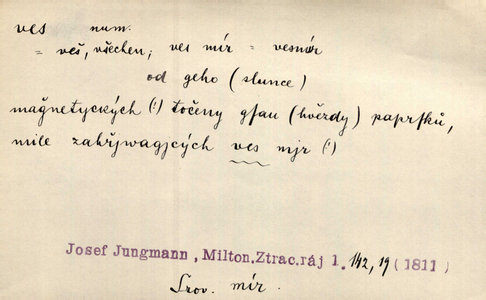 ves num.
= veš, všechen; ves mír = vesmír
od geho (slunce)
mağnetyckých (!) točeny gsau (hvězdy) paprsků,
mile zahřjwagjcých ves mjr (!)
Josef Jungmann, Milton.Ztrac.ráj 1. 142, 19 (1811)
Srov. mír.